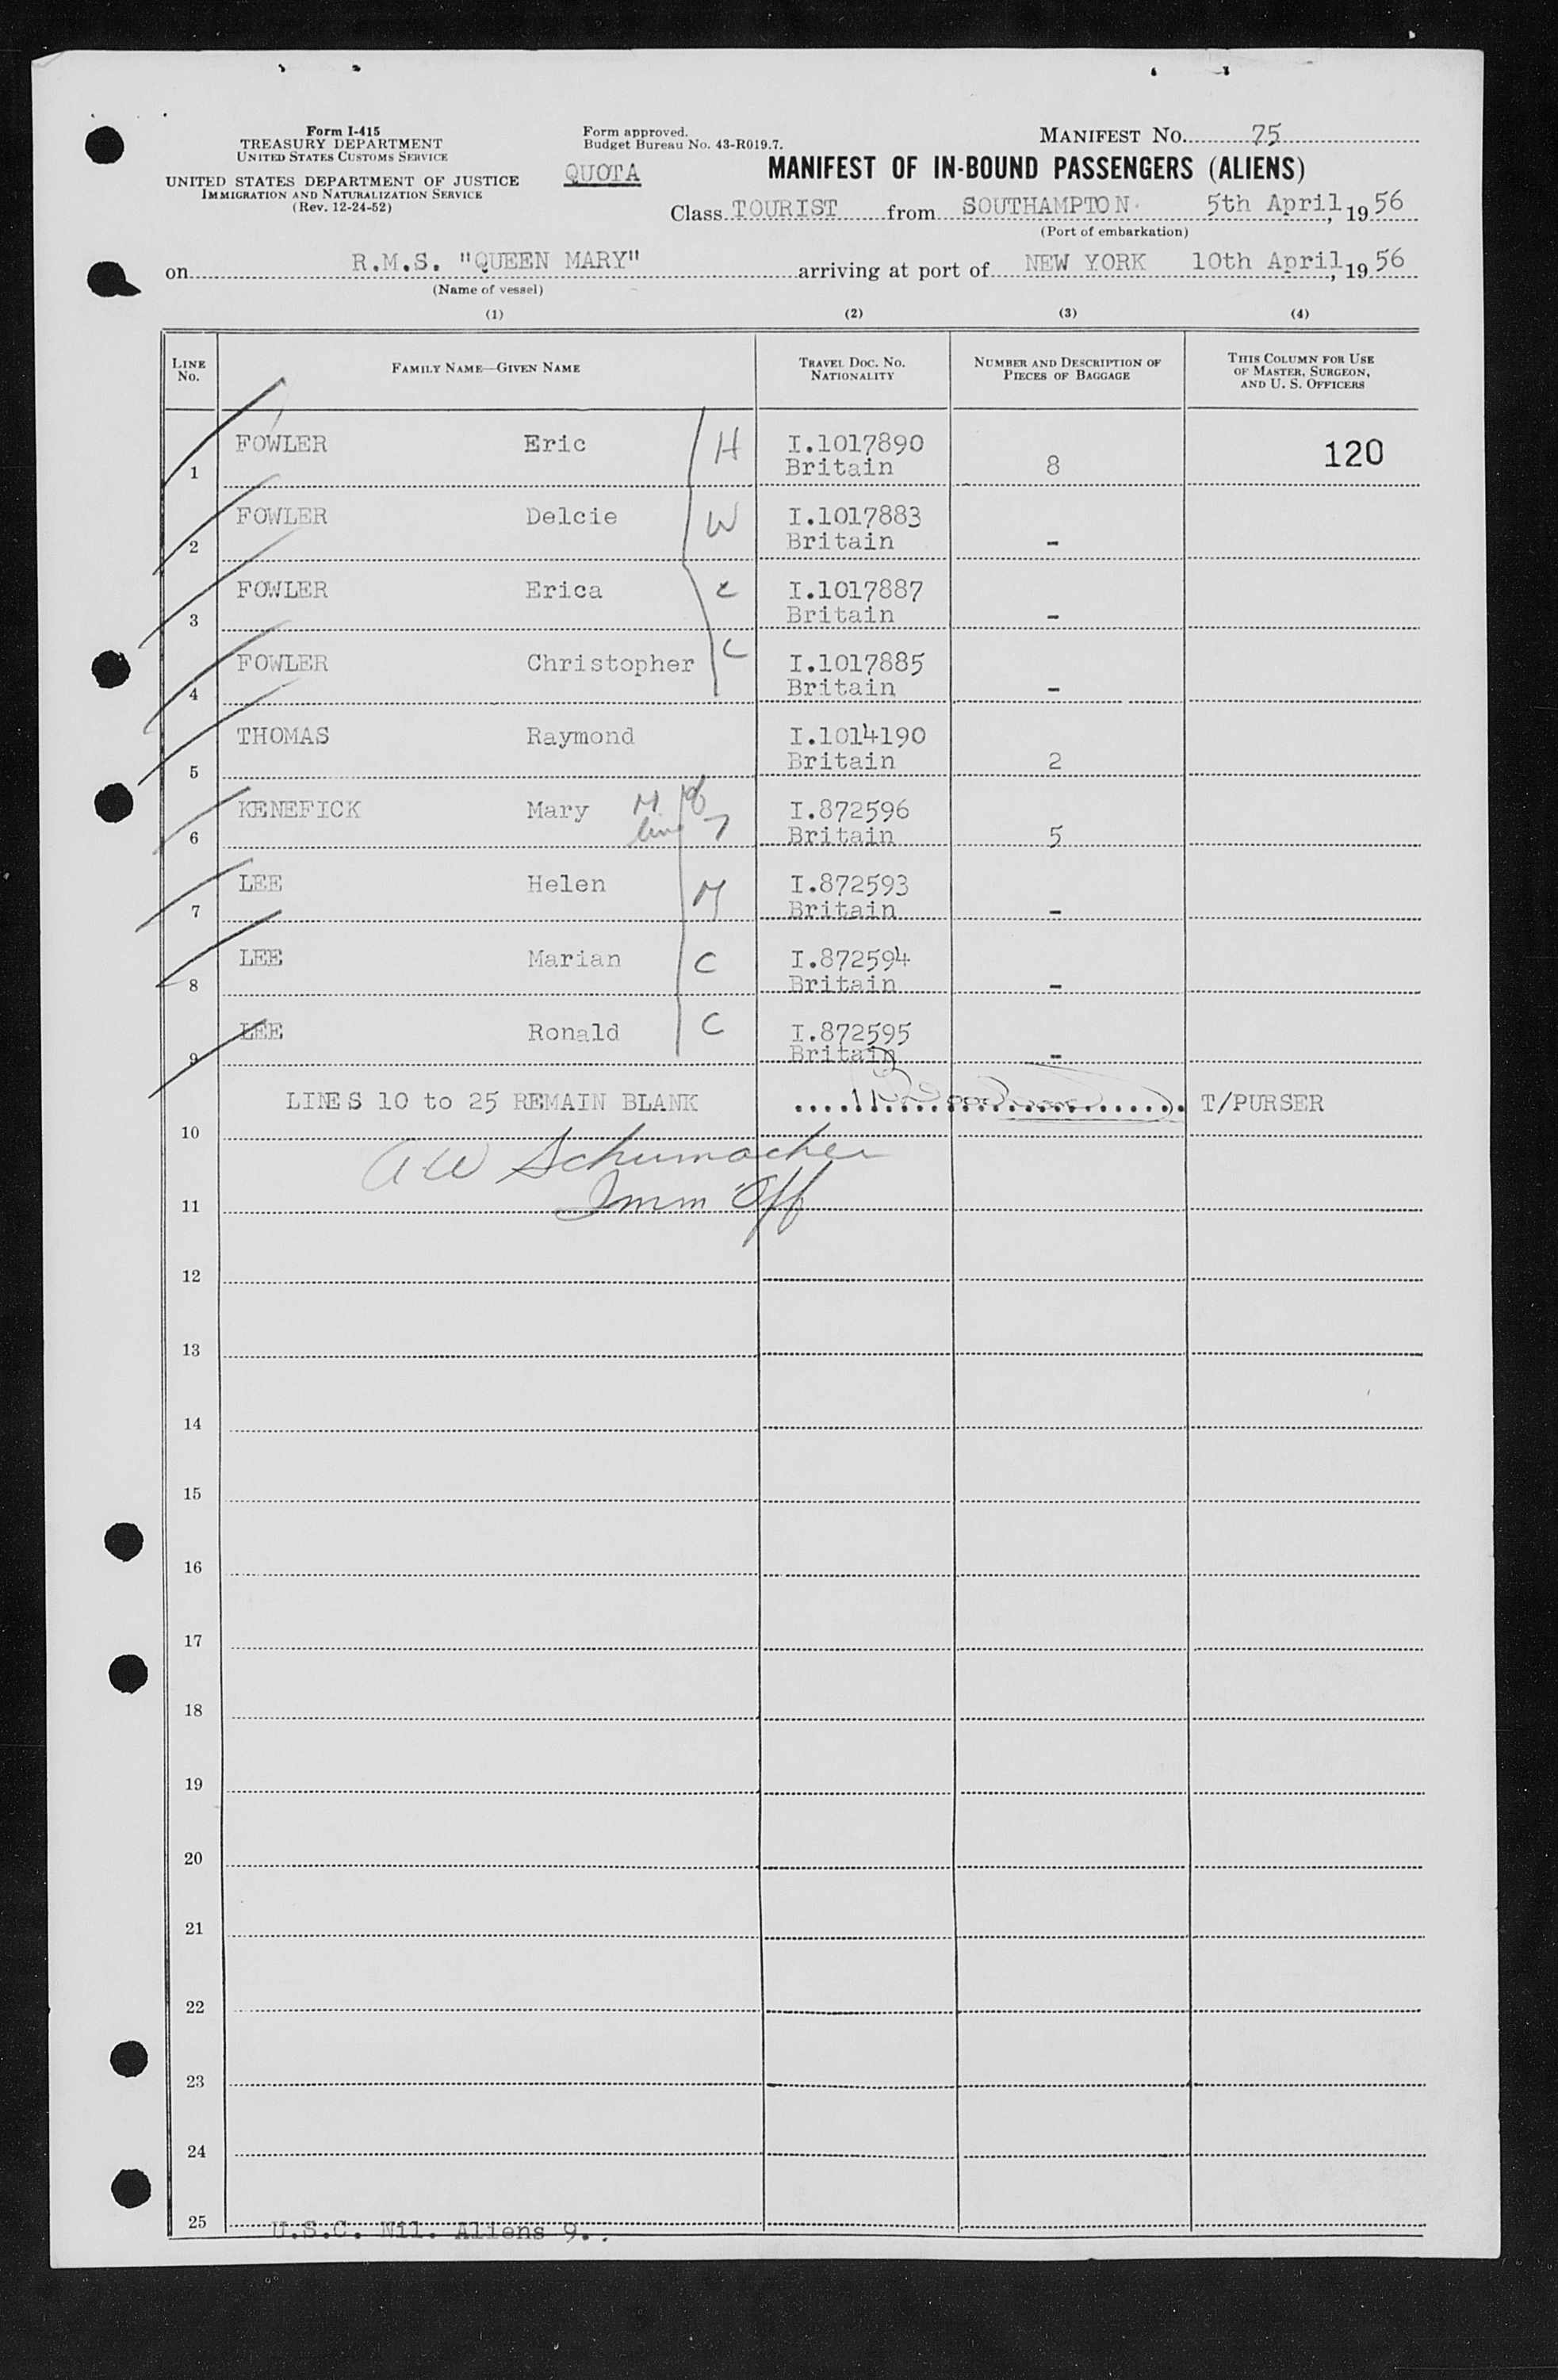 Form I-415
TREASURY DEPARTMENT
UNITED STATES CUSTOMS SERVICE
UNITED STATES DEPARTMENT OF JUSTICE
IMMIGRATION AND NATURALIZATION SERVICE
(Rev. 12-24-52)
Form approved.
Budget Bureau No. 43-R019.7.
QUOTA
MANIFEST NO. 75
MANIFEST OF IN-BOUND PASSENGERS (ALIENS)
Class TOURIST from SOUTHAMPTON. 5th April, 1956
(Port of embarkation)
on R.M.S. "QUEEN MARY" arriving at port of NEW YORK 10th April, 1956
(Name of vessel)
(1) (2) (3) (4)
LINE NO. FAMILY NAME—GIVEN NAME TRAVEL DOC. NO. NATIONALITY NUMBER AND DESCRIPTION OF PIECES OF BAGGAGE THIS COLUMN FOR USE OF MASTER, SURGEON, AND U. S. OFFICERS
1 FOWLER Eric H I.1017890 Britain 8 120
2 FOWLER Delcie W I.1017883 Britain -
3 FOWLER Erica C I.1017887 Britain -
4 FOWLER Christopher C I.1017885 Britain -
5 THOMAS Raymond I.1014190 Britain 2
6 KENEFICK Mary M of line 7 I.872596 Britain 5
7 LEE Helen M I.872593 Britain -
8 LEE Marian C I.872594 Britain -
9 LEE Ronald C I.872595 Britain -
LINES 10 to 25 REMAIN BLANK T/PURSER
10
A W Schumacher
11 Imm Off
12
13
14
15
16
17
18
19
20
21
22
23
24
25 U.S.C. Nil. Aliens 9..